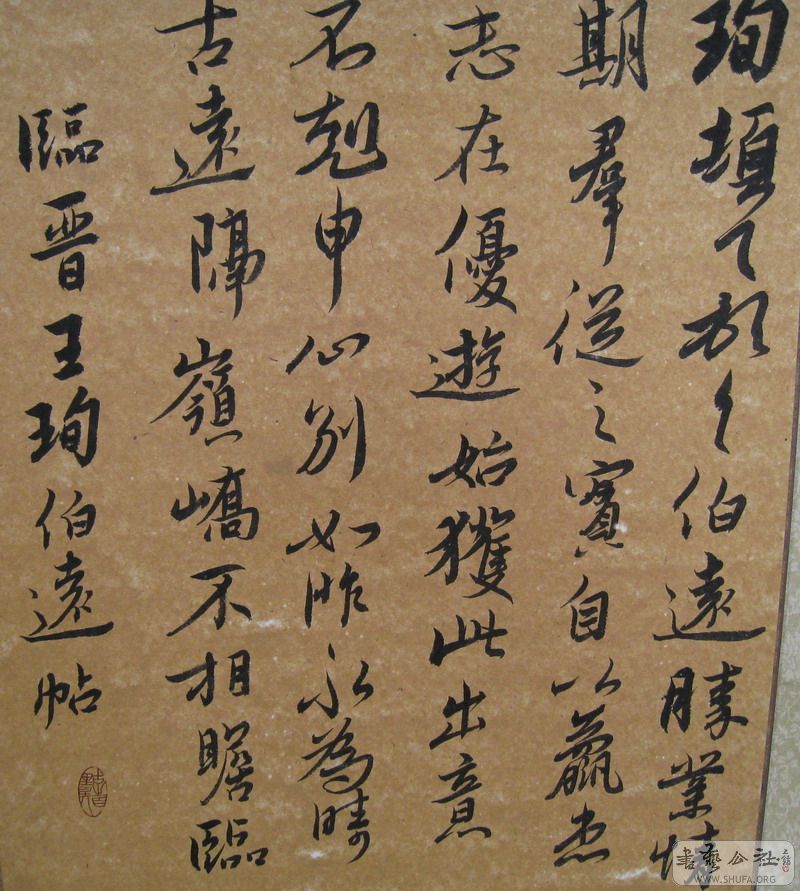 珣頓〻首〻伯遠勝業情
期羣從之寶自以羸患
志在優遊始獲此出意
不剋申心別如昨永為疇
古遠隔嶺嶠不相瞻臨
臨晋王珣伯遠帖
書藝公社
WWW.SHUFA.ORG